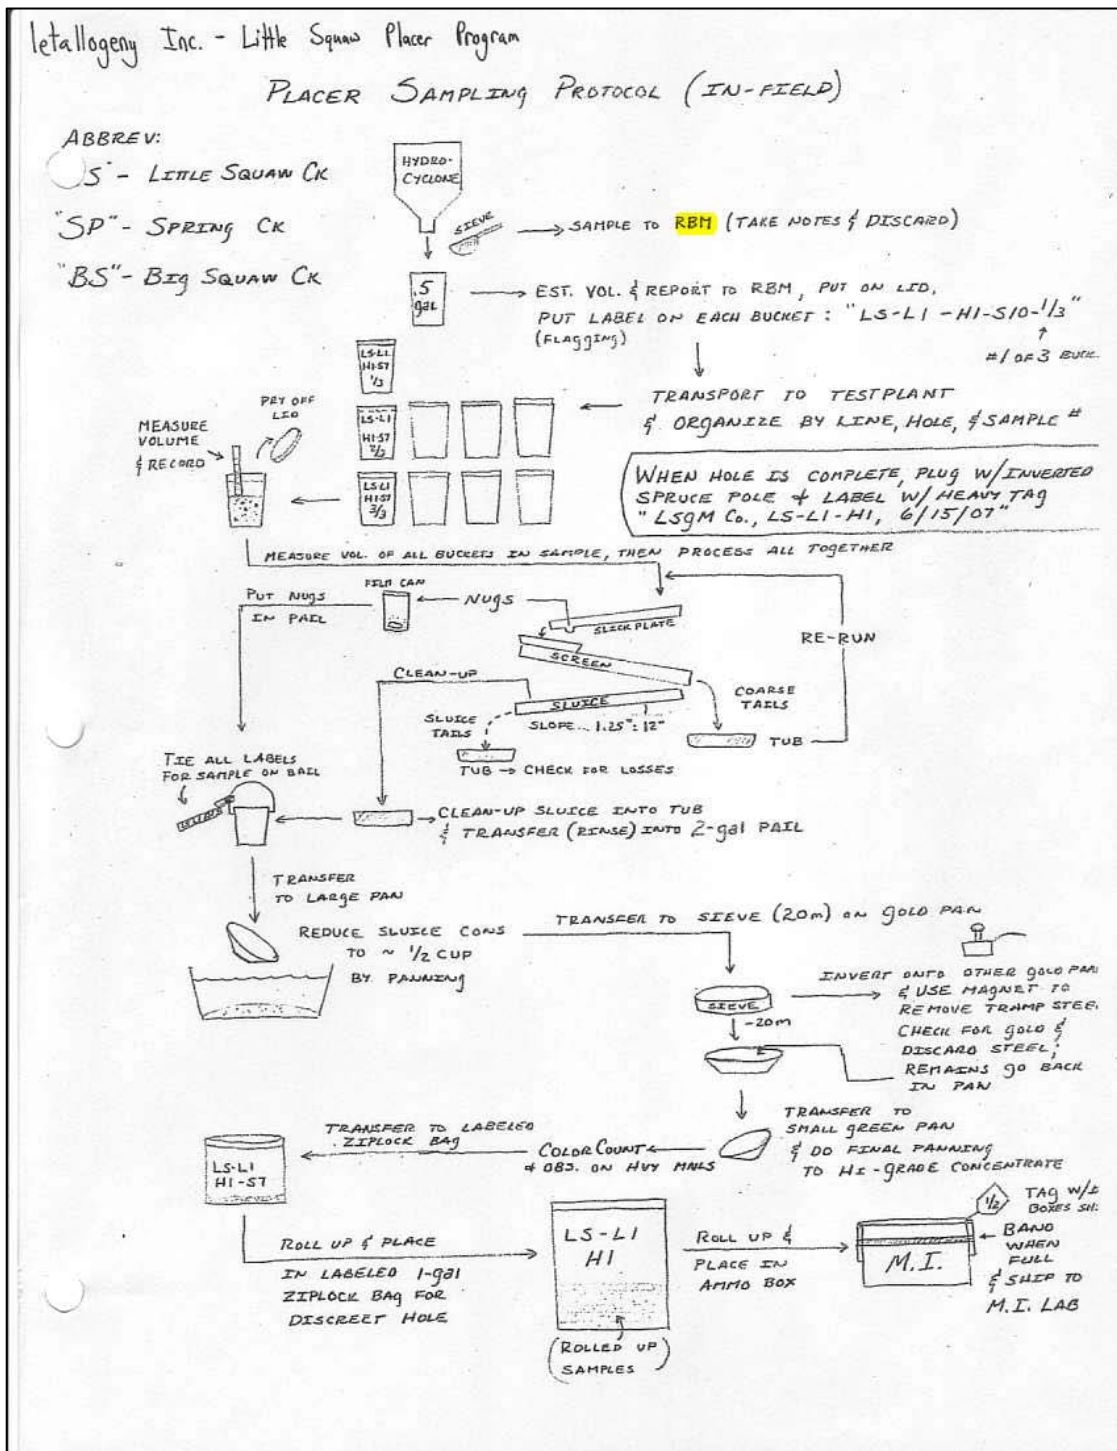 letallogeny Inc. - Little Squaw Placer Program
PLACER SAMPLING PROTOCOL (IN-FIELD)
ABBREV:
S" - LITTLE SQUAW CK
"SP" - SPRING CK
"BS" - BIG SQUAW CK
HYDRO-
CYCLONE
SIEVE
SAMPLE TO RBM (TAKE NOTES & DISCARD)
.5
gal
EST. VOL. & REPORT TO RBM, PUT ON LID,
PUT LABEL ON EACH BUCKET: "LS-L1-H1-S10-1/3"
(FLAGGING)
#1 OF 3 BUCK.
LS-L1
H1-S7
1/3
TRANSPORT TO TESTPLANT
& ORGANIZE BY LINE, HOLE, & SAMPLE #
PRY OFF
LID
LS-L1
H1-S7
2/3
MEASURE
VOLUME
& RECORD
LS-L1
H1-S7
3/3
WHEN HOLE IS COMPLETE, PLUG W/INVERTED
SPRUCE POLE & LABEL W/ HEAVY TAG
"LSGM Co., LS-L1-H1, 6/15/07"
MEASURE VOL. OF ALL BUCKETS IN SAMPLE, THEN PROCESS ALL TOGETHER
PUT NUGS
IN PAIL
FILM CAN
NUGS
SLICK PLATE
SCREEN
RE-RUN
CLEAN-UP
SLUICE
SLOPE... 1.25" : 12"
SLUICE
TAILS
COARSE
TAILS
TUB
TUB → CHECK FOR LOSSES
TIE ALL LABELS
FOR SAMPLE ON BAIL
CLEAN-UP SLUICE INTO TUB
& TRANSFER (RINSE) INTO 2-gal PAIL
TRANSFER
TO LARGE PAN
REDUCE SLUICE CONS
TO ~ 1/2 CUP
BY PANNING
TRANSFER TO SIEVE (20m) ON GOLD PAN
SIEVE
-20m
INVERT ONTO OTHER GOLD PAN
& USE MAGNET TO
REMOVE TRAMP STEE
CHECK FOR GOLD &
DISCARD STEEL;
REMAINS GO BACK
IN PAN
TRANSFER TO
SMALL GREEN PAN
& DO FINAL PANNING
TO HI-GRADE CONCENTRATE
COLOR COUNT
& OBS. ON HVY MNLS
TRANSFER TO LABELED
ZIPLOCK BAG
LS-L1
H1-S7
ROLL UP & PLACE
IN LABELED 1-gal
ZIPLOCK BAG FOR
DISCREET HOLE
LS-L1
H1
(ROLLED UP
SAMPLES)
ROLL UP &
PLACE IN
AMMO BOX
M.I.
1/2
TAG W/
BOXES
BAND
WHEN
FULL
& SHIP TO
M.I. LAB